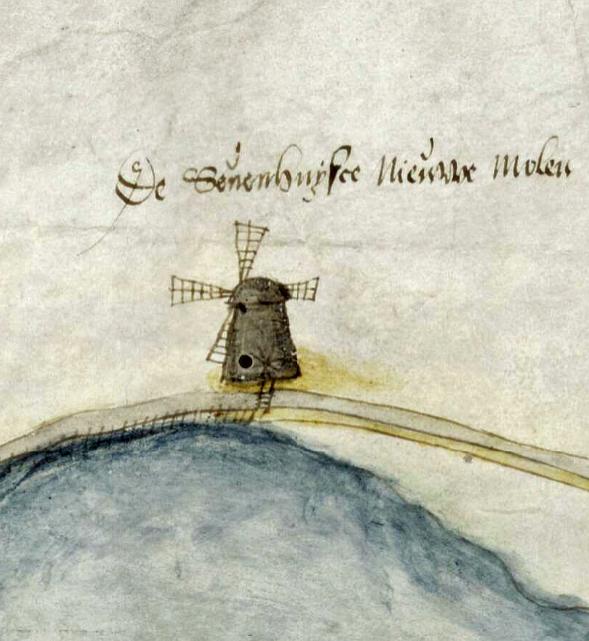 De Sevenhuysce Nieuwe Molen